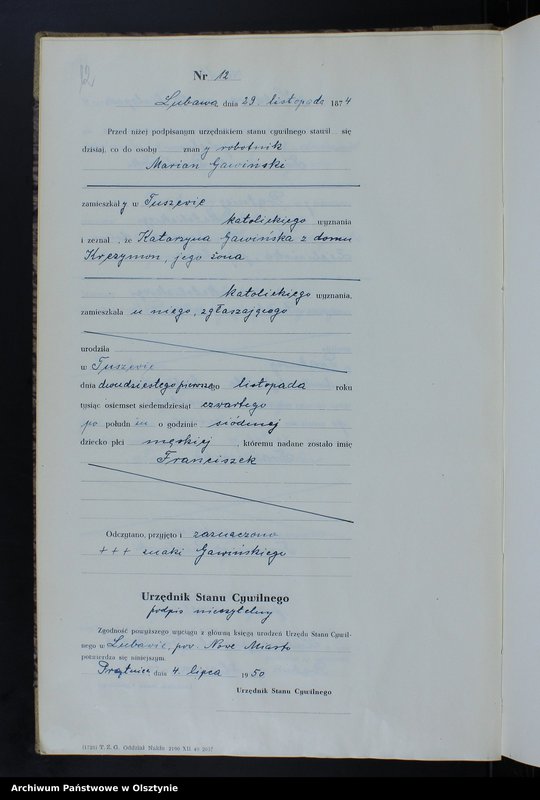 12
Nr 12
Lubawa dnia 29 listopada 1874
Przed niżej podpisanym urzędnikiem stanu cywilnego stawił się
dzisiaj, co do osoby znany robotnik
Marian Gawiński
zamieszkały w Tuszewie
katolickiego wyznania
i zeznał, że Katarzyna Gawińska z domu
Kręzymon, jego żona
katolickiego wyznania,
zamieszkała u niego, zgłaszającego
urodziła
w Tuszewie
dnia dwudziestego pierwszego listopada roku
tysiąc osiemset siedemdziesiąt czwartego
po południu o godzinie siódmej
dziecko płci męskiej, któremu nadane zostało imię
Franciszek
Odczytano, przyjęto i zaznaczono
+++ znaki Gawińskiego
Urzędnik Stanu Cywilnego
podpis nieczytelny
Zgodność powyższego wyciągu z główną księgą urodzeń Urzędu Stanu Cywil-
nego w Lubawie, pow. Nowe Miasto
potwierdza się niniejszym.
dnia 4. lipca 1950
Urzędnik Stanu Cywilnego
(1728) T. Z. G. Oddział Nakło 2190 XII 49
Archiwum Państwowe w Olsztynie